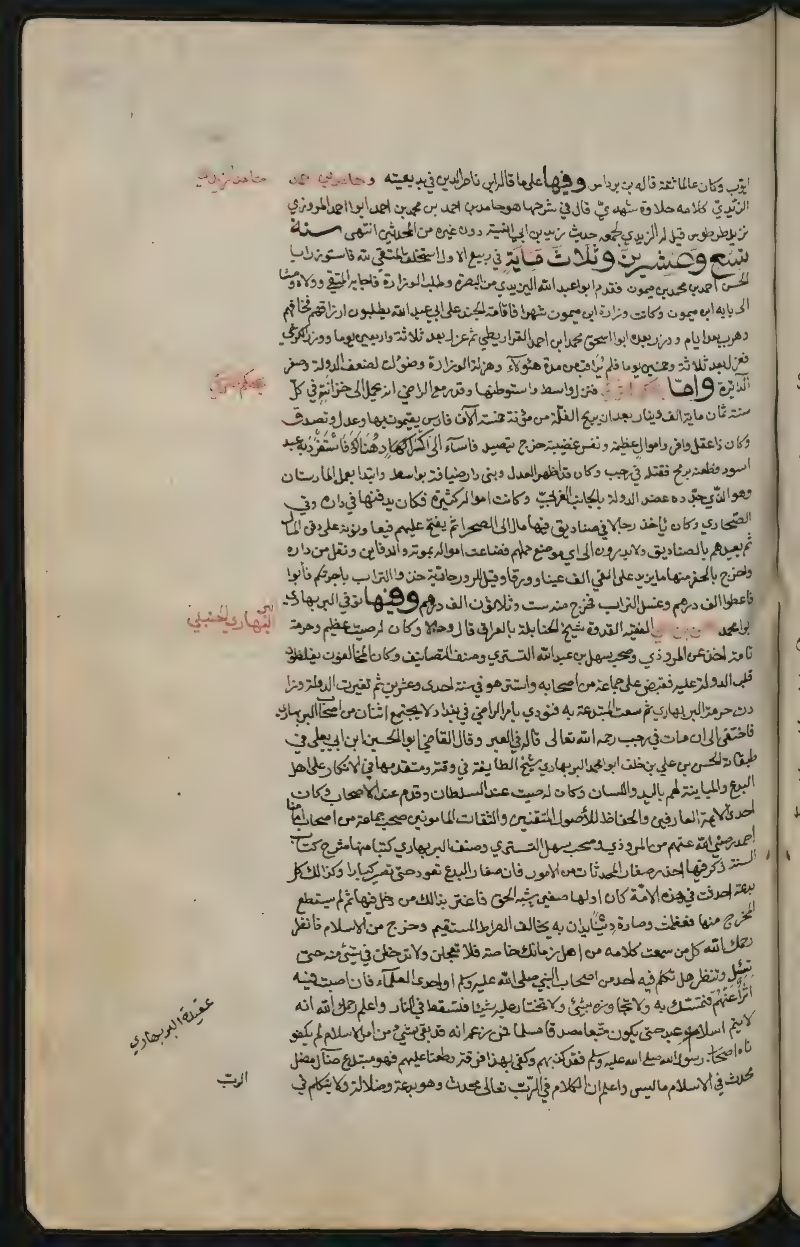 ايوب وكان عالما ثقة قاله بن برداس وفيها على ما قاله ابن ناصر الدين في بديعيته و حامد
الزيدي كلامه حلاوة شهديّ قال في شرحها هو حامد بن احمد بن محمد بن احمد ابو احمد المروزي
نزيل طرطوس قيل له الزيدي لجمعه حديث زيد بن ابي انيسة دون غيره من المحدثين انتهى سنة
تسع وعشرين وثلاث ماية في ربيع الاول استخلف المتقي لله فاستوزر ابا
الحسن احمد بن محمد بن ميمون فقدم ابو عبد الله اليزيدي من البصرة وطلب الوزارة فاجابه المتقي وولاه ومشا
الى بابه ابن ميمون وكانت وزارة ابن ميمون شهرا فاقامت الجند على ابي عبد الله يطلبون ارزاقهم فخافهم
وهرب بعد ايام و وزر بعده ابو اسحق محمد ابن احمد القراريطي ثم عزل بعد ثلاثة واربعين يوما ووزر الكرخي
فعزل بعد ثلاثة وخمسين يوما فلم يُر اقرب من مدة هٰؤلاء وهزلت الوزارة وضؤلت لضعف الدولة وصغر
الدائرة وامّا فنزل واسط واستوطنها وقرر مع الراضي انه يحمل الى خزانته في كلّ
سنة ثمان ماية الف دينار بعد ان يريح الغلّة من مؤنة خمسة آلاف فارس يقيمون بها وعدل وتصدق
وكان ذا عقل وافر واموال عظيمة ونفس غضبية خرج يتصيد فاسآء الى اكراد هناك فاستفرد به عبد
اسود وطعنه برمح فقتله في رجب وكان قد اظهر العدل وبنى دار ضيافة بواسط وابتدا بعمل المارستان
وهو الذي جدّده عضد الدولة بالجانب الغربيّ وكانت امواله كثيرة فكان يدفنها في داره وفي
الصحاري وكان ياخذ رجالا في صناديق فيها مال الى الصحرا ثم يفتح عليهم فيعاونونه على دفن المال
ثم يعيدهم بالصناديق ولا يدرون الى اي موضع حملهم فضاعت امواله بموته والدفاين ونقل من داره
واخرج بالحفر منها ما يزيد على الفي الف عينا وورقا وقيل للروزجارية خذوا التراب باجرتكم فأبوا
فاعطوا الف درهم وغسل التراب فخرج منه ست وثلاثون الف درهم وفيها توفى البربهاري
ابو محمد الفقيه القدوة شيخ الحنابلة بالعراق قالا وحالا وكان له صيت عظيم وحرمة
تامة اخذ عن المروذي وصحب سهل بن عبد الله التستري وصنف التصانيف وكان المخالفون يغلظون
قلب الدولة عليه فقبض على جماعة من اصحابه واستتر هو في سنة احدى وعشرين ثم تغيرت الدولة وزا
دت حرمة البربهاري ثم سعت المبتدعة به فنودي بامر الراضي في بغداد لا يجتمع اثنان من اصحاب البربهاري
فاختفى الى ان مات في رجب رحمه الله تعالى قاله في العبر وقال القاضي ابو الحسين ابن ابي يعلى في
طبقاته الحسن بن علي بن خلف ابو محمد البربهاري شيخ الطايفة في وقته ومتقدمها في الانكار على اهل
البدع والمباينة لهم باليد واللسان وكان له صيت عند السلطان وقدم عند الاصحاب وكان
احد الايمة العارفين والحفاظ للاصول المتقنين والثقات المامونين صحب جماعة من اصحاب امامنا
احمد رضي الله عنهم من المروذي وصحب سهل التستري وصنف البربهاري كتبا منها شرح كتاب
السنة ذكر فيها احذر صغار المحدثات من الامور فان صغار البدع تعود حتى تصير كبارا وكذالك كل
بدعة احدثت في هذه الامة كان اولها صغير يشبه الحق فاغتر بذالك من دخل فيها ثم لم يستطع
المخرج منها فعظمت وصارة دينا يدان به يخالف الصراط المستقيم وخرج من الاسلام فانظر
رحمك الله كل من سمعت كلامه من اهل زمانك خاصة فلا تعجلن ولا تدخلن في شئ منه حتى
تسئل وتنظر هل تكلم فيه احد من اصحاب النبي صلى الله عليه وكم او احدى العلمآء فان اصبت فيه
اثرا عنهم فتمسك به ولا تجاوزه بشئ ولا تختار عليه شيئا فتسقط في النار واعلم رحمك الله انه
لا يتم اسلام عبد حتى يكون متبعا مصدقا مسلما فمن زعم انه قد بقي شئ من امر الاسلام لم يكفو
ناه اصحاب رسول الله صلى الله عليه وسلم فقد كذبهم وكفى بهذا فرقة وطعنا عليهم فهو مبتدع ضآل مضل
محدث في الاسلام ما ليس واعلم ان الكلام في الرّبّ تعالى محدث وهو بدعة وضلالة ولا يتكلم في
البربهاري الحنبلي
عقيدة البربهاري
الرب